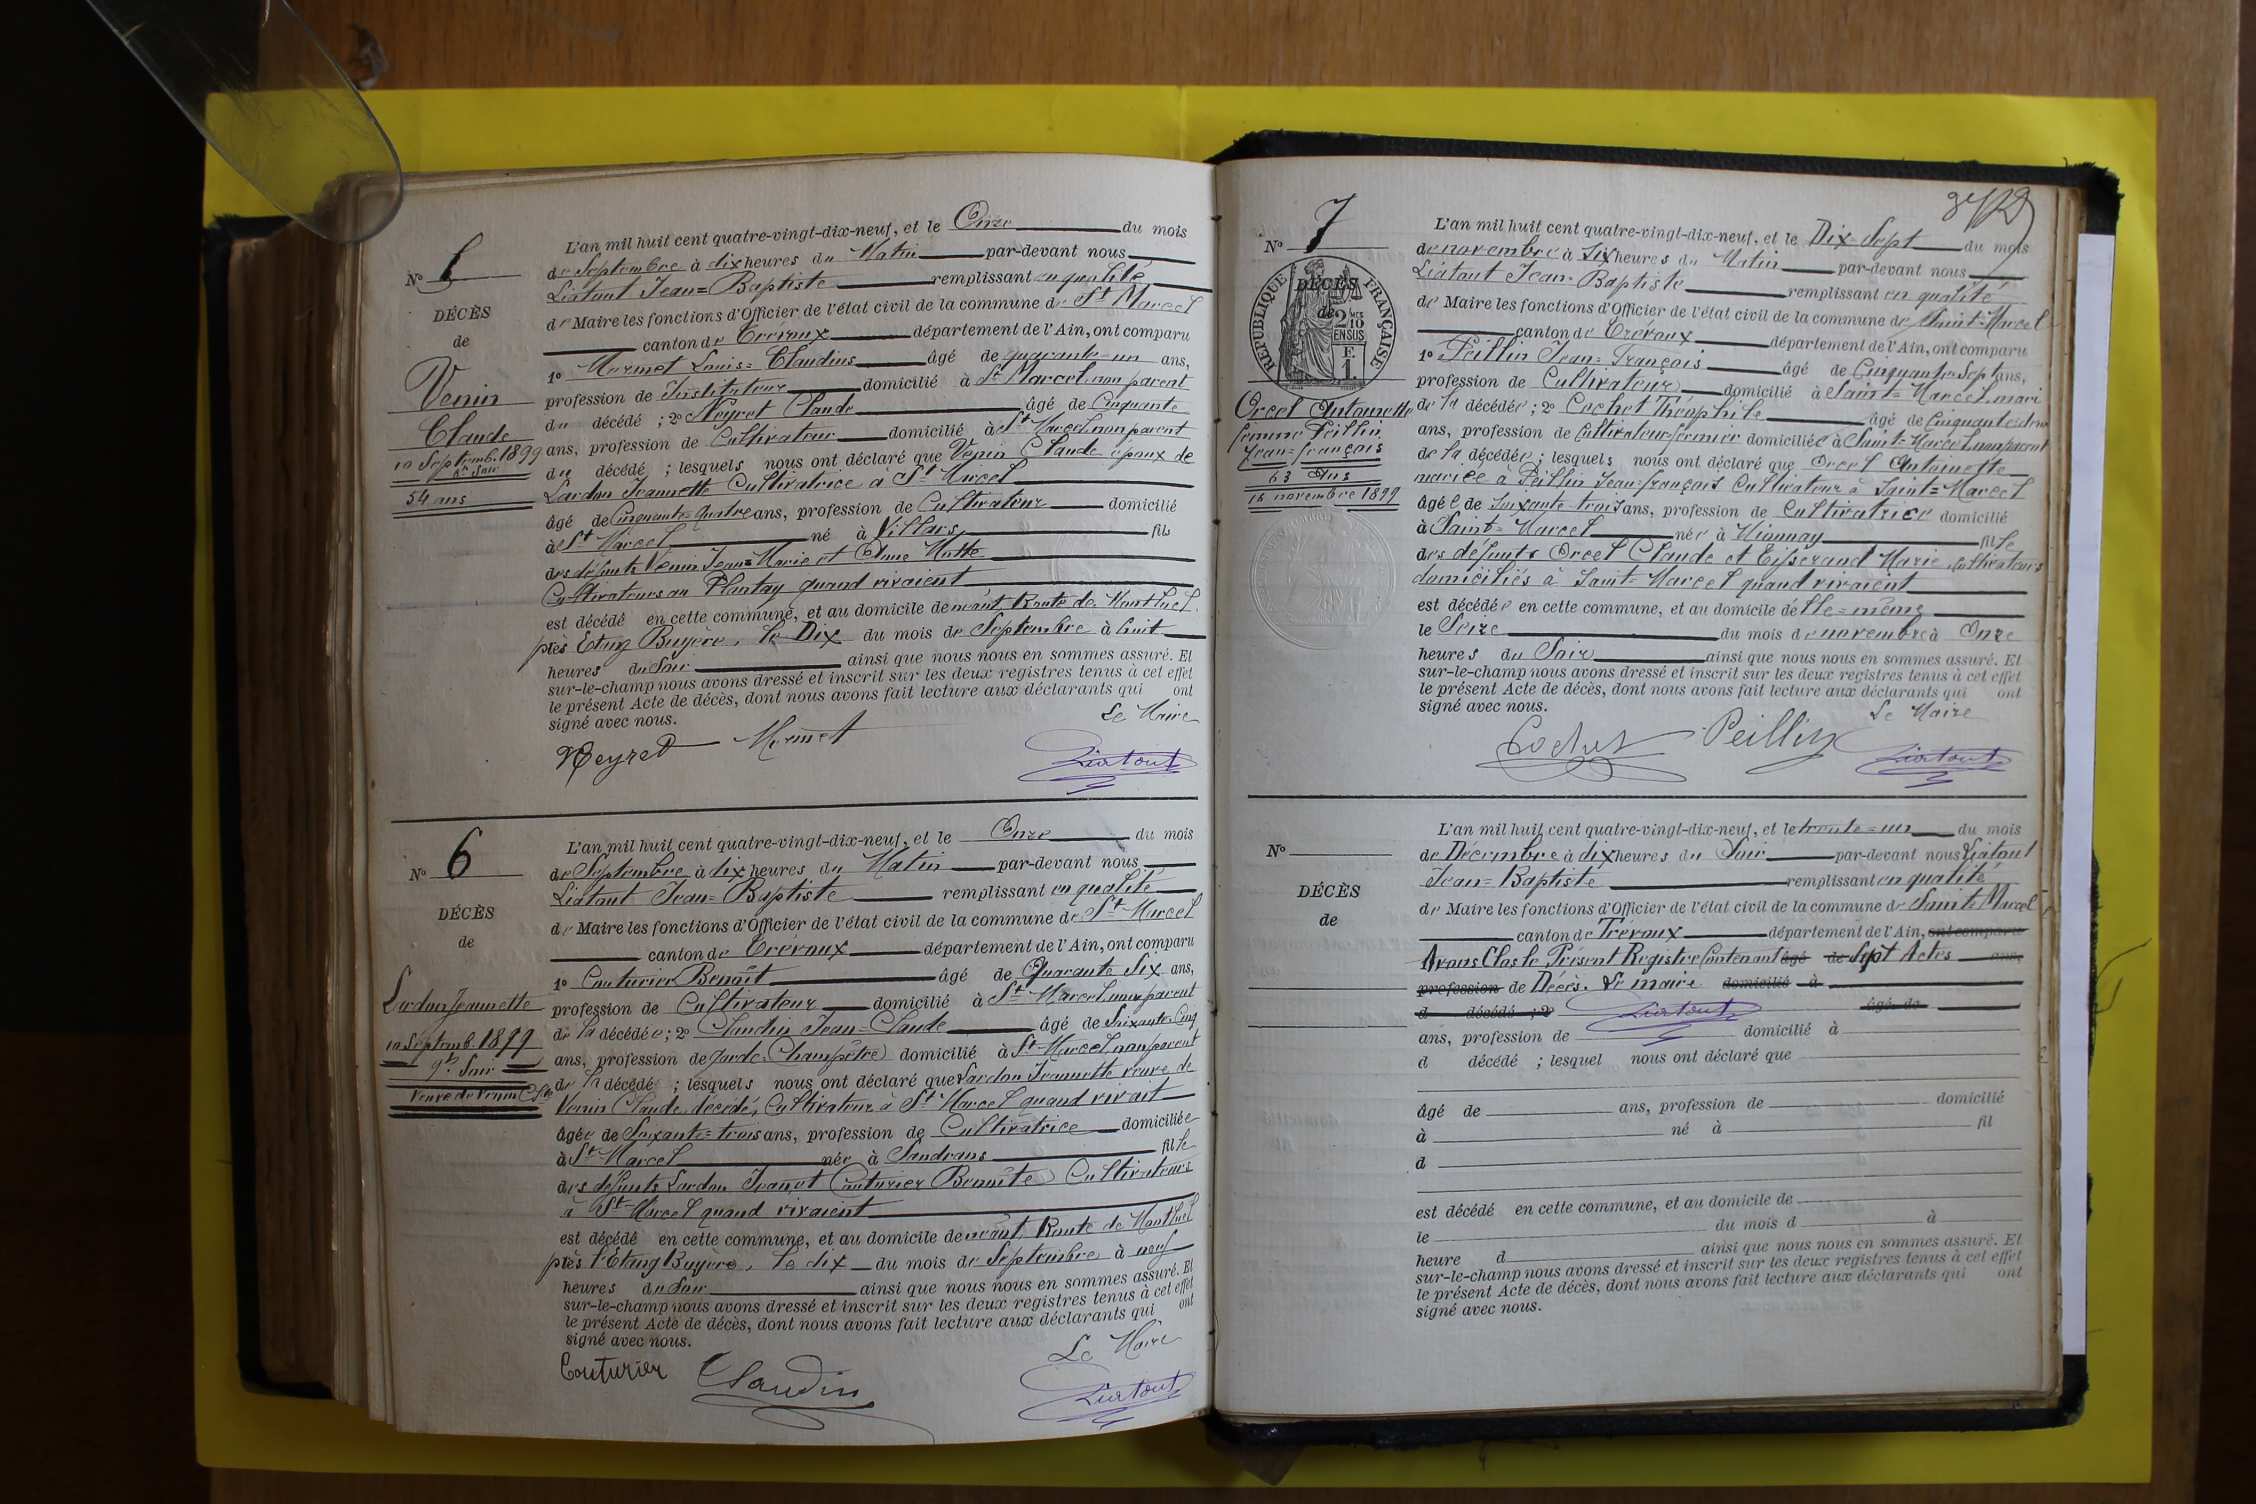 N° 5
DÉCÈS
de
Venin
Claude
10 Septemb. 1899
8h Soir
54 ans
L'an mil huit cent quatre-vingt-dix-neuf, et le Onze du mois
de Septembre à dix heures du Matin par-devant nous
Liatout Jean=Baptiste remplissant en qualité
de Maire les fonctions d'Officier de l'état civil de la commune de St Marcel
canton de Trévoux département de l'Ain, ont comparu
1° Mermet Louis=Claudius âgé de quarante-un ans,
profession de Instituteur domicilié à St Marcel non parent
du décédé ; 2° Neyret Claude âgé de Cinquante
ans, profession de Cultivateur domicilié à St Marcel non parent
du décédé ; lesquels nous ont déclaré que Venin Claude époux de
Lardon Jeannette Cultivatrice à St Marcel
âgé de Cinquante=Quatre ans, profession de Cultivateur domicilié
à St Marcel né à Villars fils
des défunts Venin Jean=Marie et Anne Motte
Cultivateurs au Plantay quand vivaient
est décédé en cette commune, et au domicile de néant, Route de Montluel
près Etang Bugère, le Dix du mois de Septembre à huit
heures du Soir ainsi que nous nous en sommes assuré. Et
sur-le-champ nous avons dressé et inscrit sur les deux registres tenus à cet effet
le présent Acte de décès, dont nous avons fait lecture aux déclarants qui ont
signé avec nous.
Le Maire
Neyret Mermet Liatout
N° 6
DÉCÈS
de
Lardon Jeannette
10 Septemb. 1899
9h Soir
Veuve de Venin Cde
L'an mil huit cent quatre-vingt-dix-neuf, et le Onze du mois
de Septembre à dix heures du Matin par-devant nous
Liatout Jean=Baptiste remplissant en qualité
de Maire les fonctions d'Officier de l'état civil de la commune de St Marcel
canton de Trévoux département de l'Ain, ont comparu
1° Couturier Benoît âgé de Quarante Six ans,
profession de Cultivateur domicilié à St Marcel non parent
de la décédée ; 2° Claudin Jean=Claude âgé de Soixante Cinq
ans, profession de garde Champêtre domicilié à St Marcel non parent
de la décédé ; lesquels nous ont déclaré que Lardon Jeannette veuve de
Venin Claude décédé, Cultivateur à St Marcel quand vivait
âgée de Soixante=trois ans, profession de Cultivatrice domiciliée
à St Marcel née à Sandrans fille
des défunts Lardon Jean et Couturier Benoîte Cultivateurs
à St Marcel quand vivaient
est décédé en cette commune, et au domicile de néant, Route de Montluel
près l'Etang Bugère, le dix du mois de Septembre à neuf
heures du Soir ainsi que nous nous en sommes assuré. Et
sur-le-champ nous avons dressé et inscrit sur les deux registres tenus à cet effet
le présent Acte de décès, dont nous avons fait lecture aux déclarants qui ont
signé avec nous.
Le Maire
Couturier Claudin Liatout
N° 7
DÉCÈS
de
RÉPUBLIQUE FRANÇAISE
2 MES
10
EN SUS
F.
1
Orcel Antoinette
femme Peillin
Jean=François
63 Ans
16 novembre 1899
L'an mil huit cent quatre-vingt-dix-neuf, et le Dix=Sept du mois
de novembre à Six heures du Matin par-devant nous
Liatout Jean=Baptiste remplissant en qualité
de Maire les fonctions d'Officier de l'état civil de la commune de Saint=Marcel
canton de Trévoux département de l'Ain, ont comparu
1° Peillin Jean=François âgé de Cinquante=Sept ans,
profession de Cultivateur domicilié à Saint=Marcel, mari
de la décédée ; 2° Cochet Théophile âgé de Cinquante=deux
ans, profession de Cultivateur fermier domicilié à Saint=Marcel, non parent
de la décédée ; lesquels nous ont déclaré que Orcel Antoinette
mariée à Peillin Jean-françois Cultivateur à Saint=Marcel
âgée de Soixante=trois ans, profession de Cultivatrice domicilié
à Saint=Marcel née à Mionnay fille
des défunts Orcel Claude et Tisserand Marie, Cultivateurs
domiciliés à Saint=Marcel quand vivaient
est décédée en cette commune, et au domicile d'elle=même
le Seize du mois de novembre à Onze
heures du Soir ainsi que nous nous en sommes assuré. Et
sur-le-champ nous avons dressé et inscrit sur les deux registres tenus à cet effet
le présent Acte de décès, dont nous avons fait lecture aux déclarants qui ont
signé avec nous.
Le Maire
Cochet Peillin Liatout
N°
DÉCÈS
de
L'an mil huit cent quatre-vingt-dix-neuf, et le trente=un du mois
de Décembre à dix heures du Soir par-devant nous Liatout
Jean=Baptiste remplissant en qualité
de Maire les fonctions d'Officier de l'état civil de la commune de Saint=Marcel
canton de Trévoux département de l'Ain, ont comparu
Avons Clos le Présent Registre Contenant âgé de Sept Actes ans,
profession de Décès. Le maire domicilié à
d décédé ; 2° Liatout âgé de
ans, profession de domicilié à
d décédé ; lesquel nous ont déclaré que
âgé de ans, profession de domicilié
à né à fil
d
est décédé en cette commune, et au domicile de
le du mois d à
heure d ainsi que nous nous en sommes assuré. Et
sur-le-champ nous avons dressé et inscrit sur les deux registres tenus à cet effet
le présent Acte de décès, dont nous avons fait lecture aux déclarants qui ont
signé avec nous.